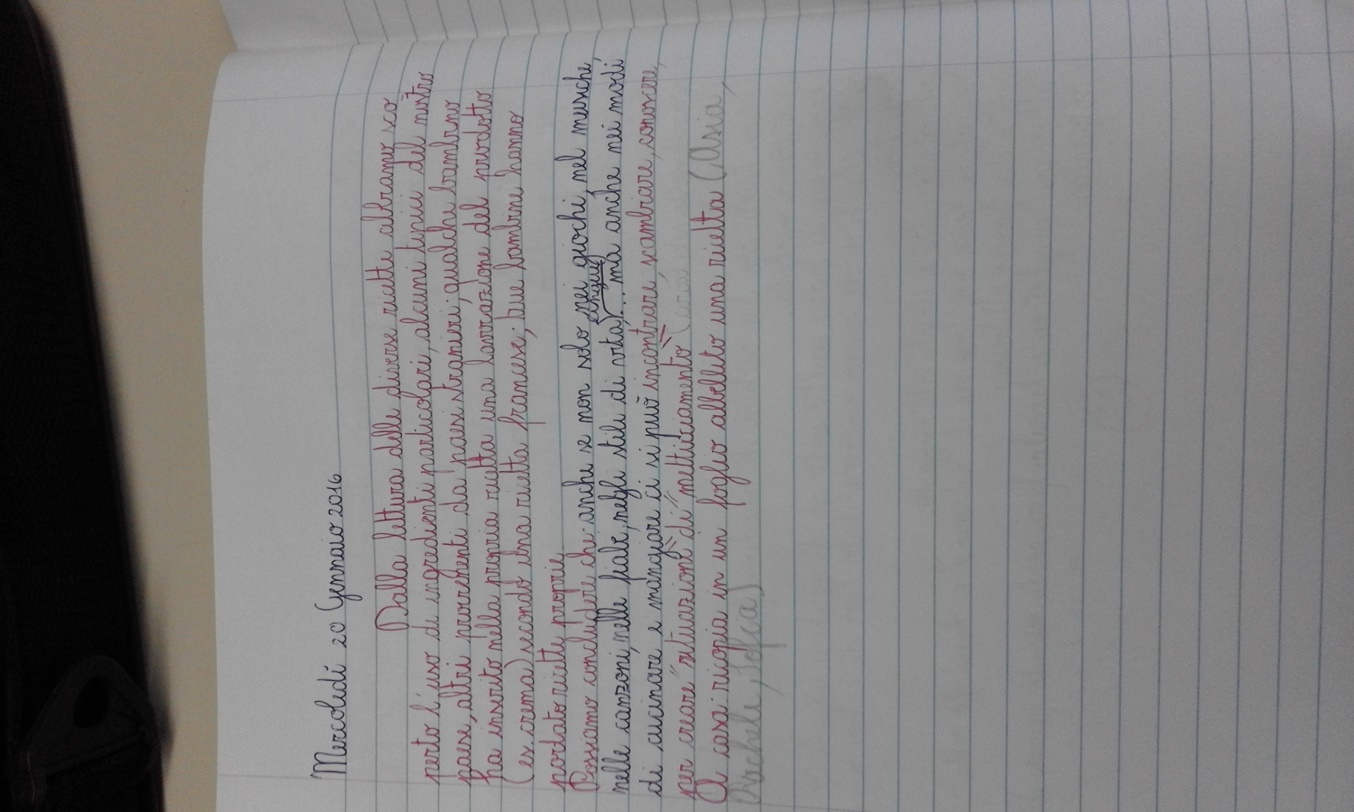 Mercoledì 20 Gennaio 2016
Dalla lettura delle diverse ricette abbiamo sco
perto l'uso di ingredienti particolari, alcuni tipici del nostro
paese, altri provenienti da paesi stranieri; qualche bambino
ha inserito nella propria ricetta una lavorazione del prodotto
(es crema) secondo una ricetta francese; due bambine hanno
portato ricette proprie
Possiamo concludere che: anche se non solo nei giochi, nel musiche,
nelle canzoni, nelle fiabe, negli stili di vita)... ma anche nei modi
di cucinare e mangiare ci si può incontrare, scambiare, conoscere,
per creare "situazioni di" "meltiguamento"
A casa: ricopia in un foglio abbellito una ricetta (Asia,
Rachele, Sofia)